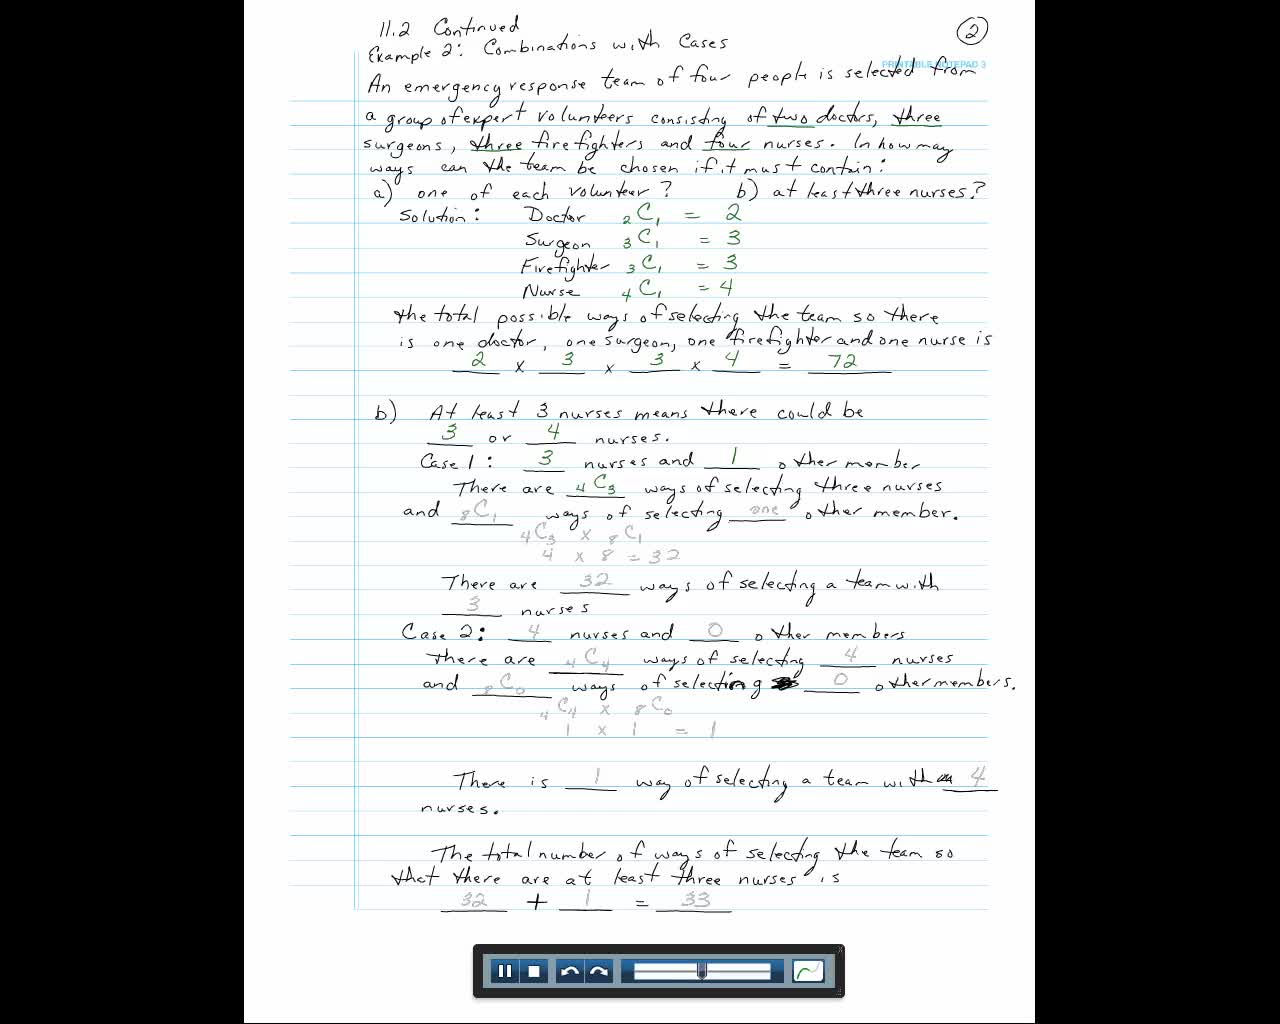 11.2 Continued
2
Example 2: Combinations with Cases
PRINTABLE NOTEPAD 3
An emergency response team of four people is selected from
a group of expert volunteers consisting of two doctors, three
surgeons, three firefighters and four nurses. In how may
ways can the team be chosen if it must contain:
a) one of each volunteer? b) at least three nurses?
Solution: Doctor 2C1 = 2
Surgeon 3C1 = 3
Firefighter 3C1 = 3
Nurse 4C1 = 4
The total possible ways of selecting the team so there
is one doctor, one surgeon, one firefighter and one nurse is
2 x 3 x 3 x 4 = 72
b) At least 3 nurses means there could be
3 or 4 nurses.
Case 1: 3 nurses and 1 other member
There are 4C3 ways of selecting three nurses
and 8C1 ways of selecting one other member.
4C3 x 8C1
4 x 8 = 32
There are 32 ways of selecting a team with
3 nurses
Case 2: 4 nurses and 0 other members
There are 4C4 ways of selecting 4 nurses
and 8C0 ways of selecting 0 other members.
4C4 x 8C0
1 x 1 = 1
There is 1 way of selecting a team with 4
nurses.
The total number of ways of selecting the team so
that there are at least three nurses is
32 + 1 = 33